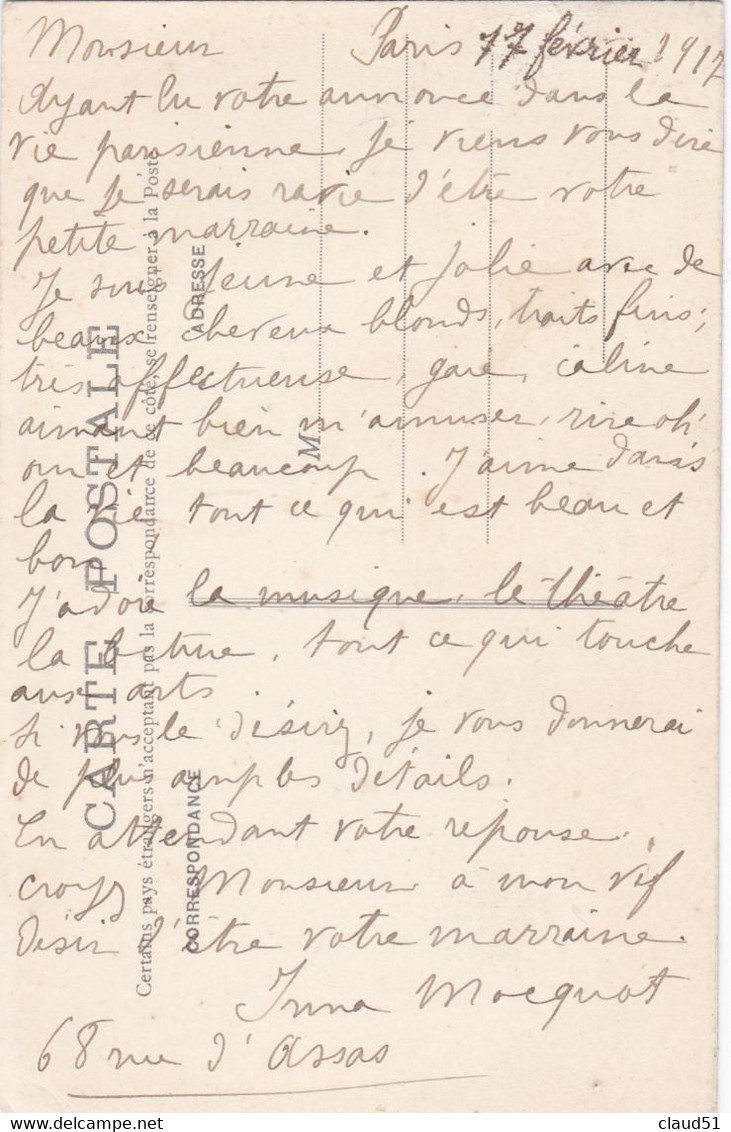 Monsieur Paris 17 février 1917
Ayant lu votre annonce dans la
vie parisienne, je viens vous dire
que je serais ravie d'être votre
petite marraine.
Je suis jeune et jolie avec de
beaux cheveux blonds, traits fins,
très affectueuse, gaie, caline
aimant bien m'amuser, rire oh!
oui et beaucoup. J'aime dans
la vie tout ce qui est beau et
bon.
J'adore la musique, le théâtre
la lecture, tout ce qui touche
aux arts.
Si vous le désirez, je vous donnerai
de plus amples détails.
En attendant votre réponse.
croyez Monsieur à mon vif
désir d'être votre marraine.
Mocquot
68 rue d'Assas
CARTE POSTALE
Certains pays étrangers n'acceptant pas la correspondance de ce côté, se renseigner à la Poste
CORRESPONDANCE
ADRESSE
M
claud51